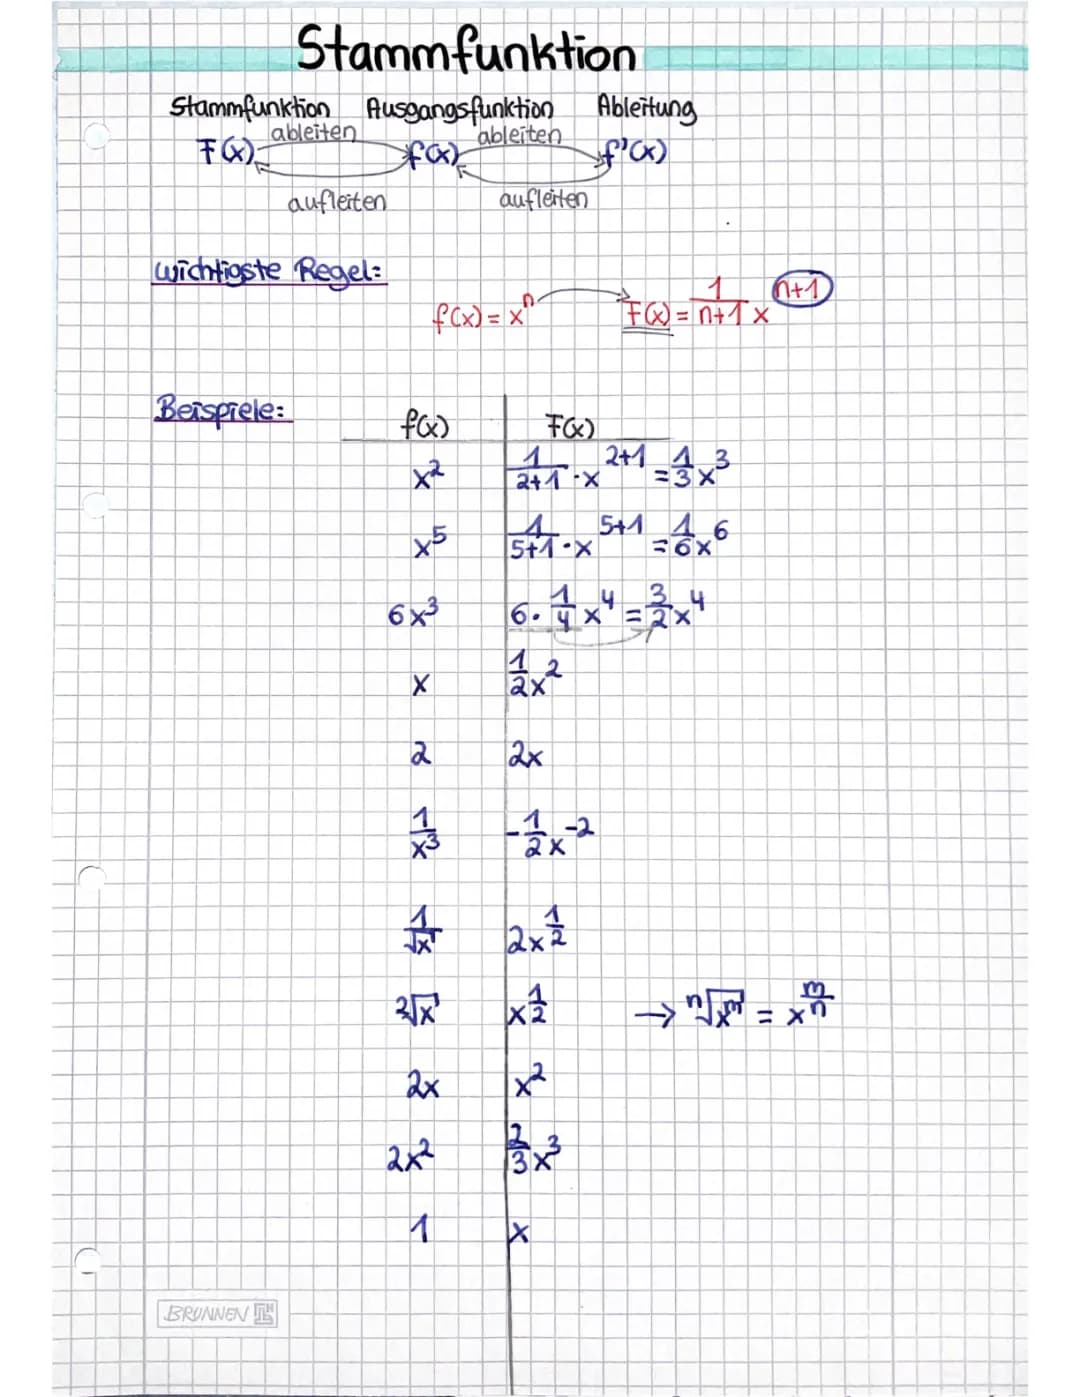 Stammfunktion
Stammfunktion Ausgangsfunktion Ableitung
ableiten ableiten
F(x) f(x) f'(x)
aufleiten aufleiten
wichtigste Regel:
f(x) = xⁿ F(x) = 1/n+1 x^n+1
Beispiele:
f(x) F(x)
x² 1/2+1 · x^2+1 = 1/3 x³
x⁵ 1/5+1 · x^5+1 = 1/6 x⁶
6x³ 6 · 1/4 x⁴ = 3/2 x⁴
x 1/2 x²
2 2x
1/x³ -1/2 x⁻²
1/√x 2x^1/2
²√x x^1/2 → ⁿ√x^m = x^m/n
2x x²
2x² 2/3 x³
1 x
BRUNNEN